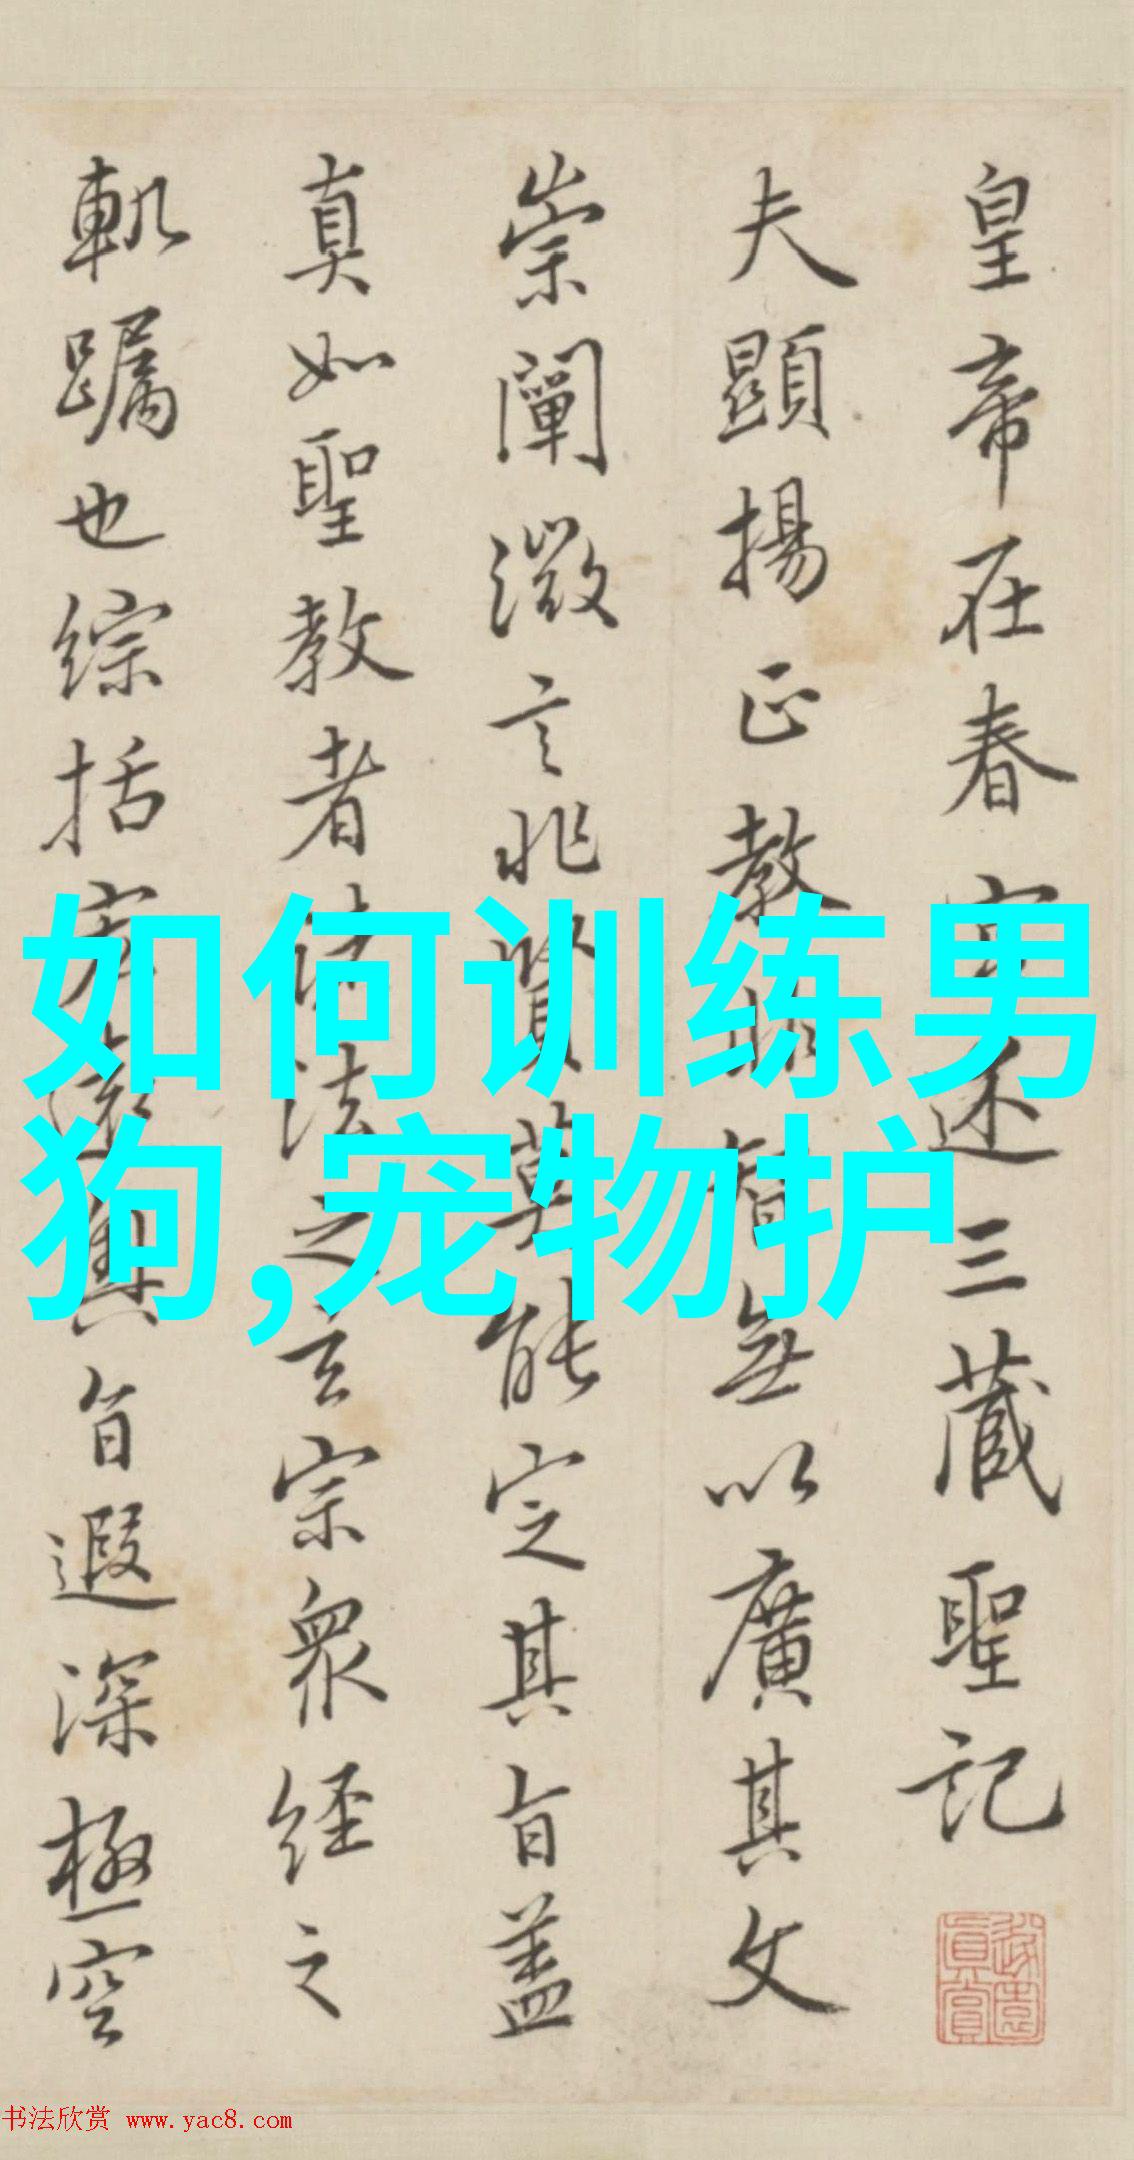 皇帝在春宮述三藏聖記
夫顯揚正教非智無以廣其文
崇闡微言非賢莫能定其旨蓋
真如聖教者諸法之玄宗衆經之
軌躅也綜括宏遠奧旨遐深極空
如何训练男
狗,宠物护
书法欣赏 www.yac8.com